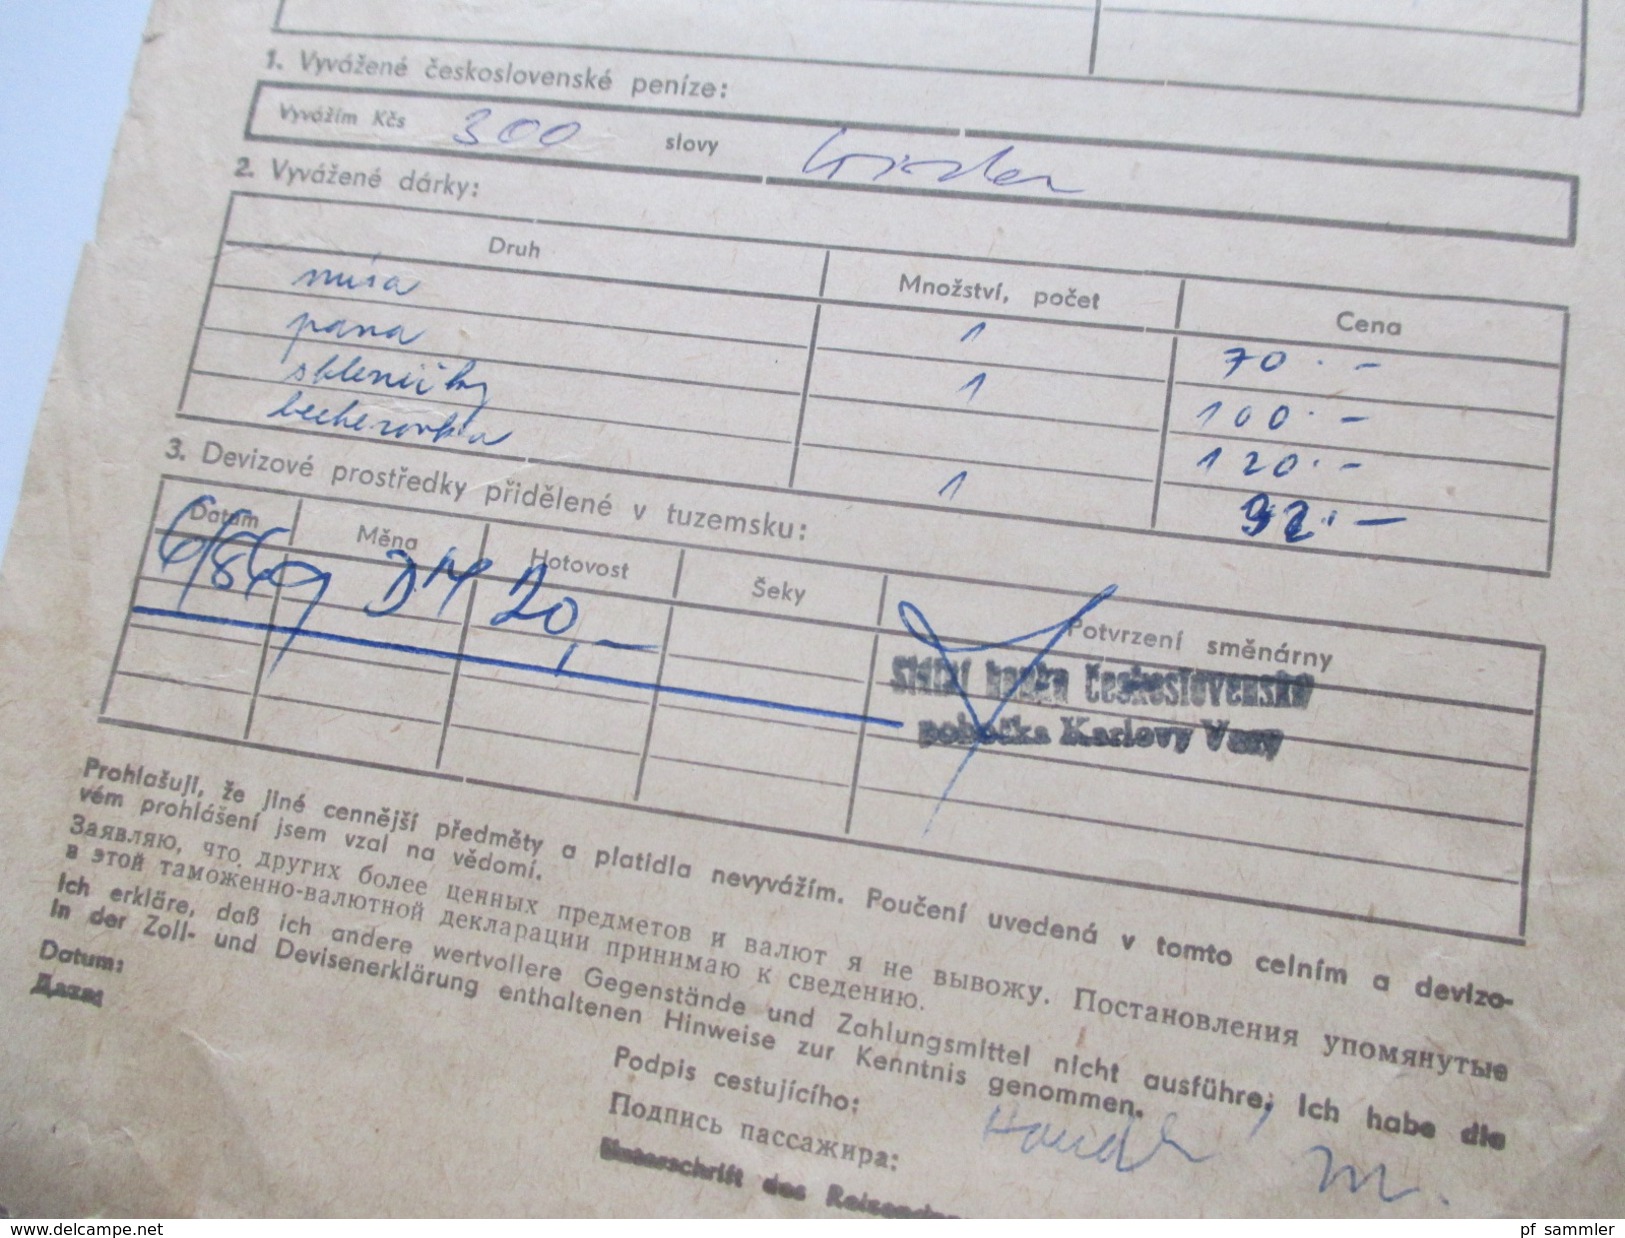 1. Vyvážené československé peníze:
Vyvážím Kčs 300 slovy
2. Vyvážené dárky:
Druh Množství, počet Cena
mísa 1 70.-
pana 1 100.-
skleničky 120.-
becherovka 1 92.-
3. Devizové prostředky přidělené v tuzemsku:
Datum Měna Hotovost Šeky Potvrzení směnárny
DM 20,-
Státní banka československá
pobočka Karlovy Vary
Prohlašuji, že jiné cennější předměty a platidla nevyvážím. Poučení uvedená v tomto celním a devizo-
vém prohlášení jsem vzal na vědomí.
Заявляю, что других более ценных предметов и валют я не вывожу. Постановления упомянутые
в этой таможенно-валютной декларации принимаю к сведению.
Ich erkläre, daß ich andere wertvollere Gegenstände und Zahlungsmittel nicht ausführe; Ich habe die
in der Zoll- und Devisenerklärung enthaltenen Hinweise zur Kenntnis genommen.
Datum:
Дата:
Podpis cestujícího:
Подпись пассажира:
Unterschrift des Reisenden
http://www.delcampe.net
pf_sammler